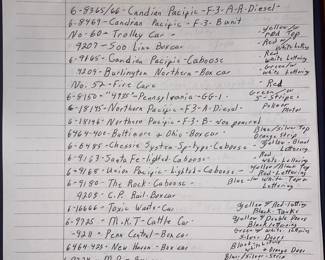 6-8365/66-Candian Pacific-F-3-A-A-Diesel-
6-8469-Candian Pacific-F-3 B unit
No-60-Trolley Car- Yellow w/ Red Top
-9207-Soo Line Boxcar Red w/ White Letters
6-9165-Candian Pacific-Caboose Red White Lettering
-9209-Burlington Northern-Boxcar Green w/ White Lettering
No.52-Fire Car- -Red
6-8150-"4935"-Pennsylvania-GG-1- Green w/ 5-Stripes-
6-18195-Northern Pacific-F-3-A-Diesel- Motor
6-18196-Northern Pacific-F-3-B-
6464-400-Baltimore & Ohio-Boxcar- Blue/Silver Top Orange Strip
6-6485-Chessie System-Sp-type-Caboose- Yellow-Blue Lettering
6-9163-Santa Fe-lighted-Caboose Red White Lettering
6-9168-Union Pacific-Lighted-Caboose- Yellow/Black Top Red-Lettering
6-9180-The Rock-Caboose- Blue-w/ White Top & Lettering
-9208-C.P. Rail-Boxcar Yellow
6-16666-Toxic Waste-Car Yellow
6-9725-M.K.T-Cattle Car- Yellow Double Doors Black Lettering
-9211-Penn Central-Boxcar Green w/ White Silver Doors
6464-425-New Haven-Boxcar Black w/ White & Orange Door
Blue/Silver-Strip